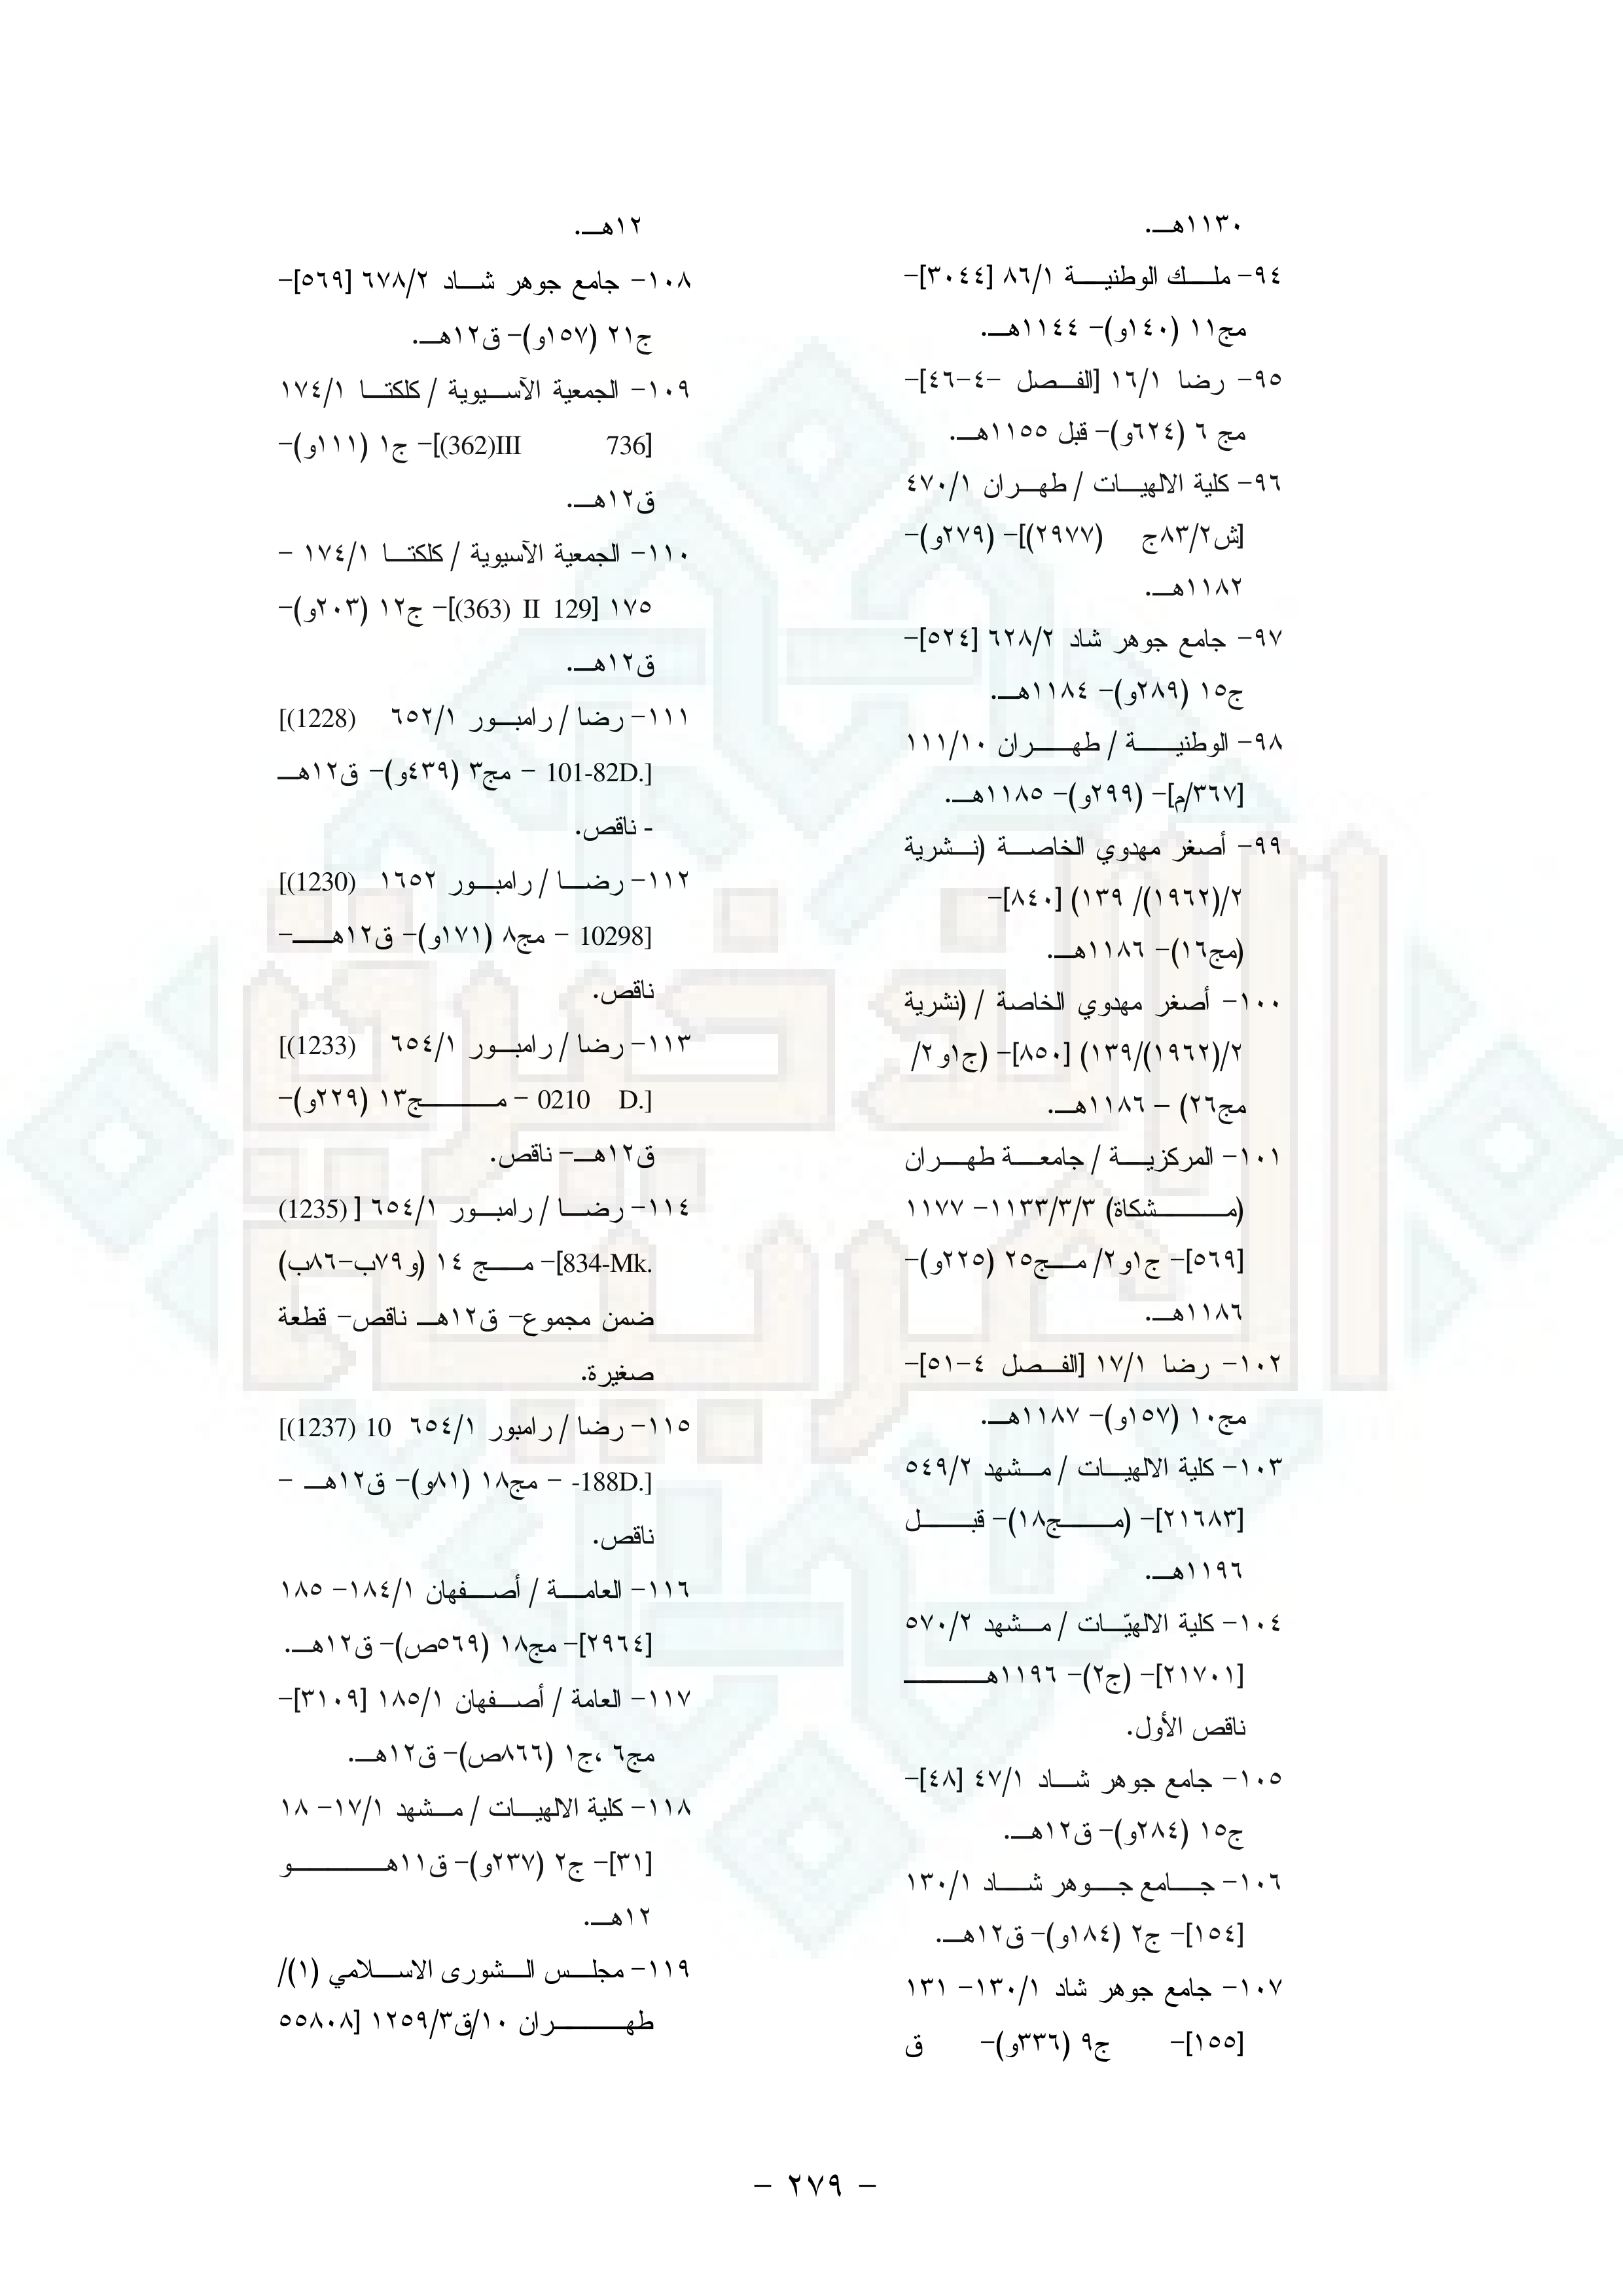 ١١٣٠هـ.
٩٤- ملك الوطنية ٨٦/١ [٣٠٤٤]-
مج١١ (١٤٠و)- ١١٤٤هـ.
٩٥- رضا ١٦/١ [الفصل -٤-٤٦]-
مج ٦ (٦٢٤و)- قبل ١١٥٥هـ.
٩٦- كلية الالهيات / طهران ٤٧٠/١
[ش٨٣/٢ج (٢٩٧٧)]- (٢٧٩و)-
١١٨٢هـ.
٩٧- جامع جوهر شاد ٦٢٨/٢ [٥٢٤]-
ج١٥ (٢٨٩و)- ١١٨٤هـ.
٩٨- الوطنية / طهران ١١١/١٠
[٣٦٧/م]- (٢٩٩و)- ١١٨٥هـ.
٩٩- أصغر مهدوي الخاصة (نشرية
٢/(١٩٦٢)/ ١٣٩) [٨٤٠]-
(مج١٦)- ١١٨٦هـ.
١٠٠- أصغر مهدوي الخاصة / (نشرية
٢/(١٩٦٢)/١٣٩) [٨٥٠]- (ج١و٢/
مج٢٦) – ١١٨٦هـ.
١٠١- المركزية / جامعة طهران
(مشكاة) ١١٣٣/٣/٣- ١١٧٧
[٥٦٩]- ج١و٢/ مج٢٥ (٢٢٥و)-
١١٨٦هـ.
١٠٢- رضا ١٧/١ [الفصل ٤-٥١]-
مج١٠ (١٥٧و)- ١١٨٧هـ.
١٠٣- كلية الالهيات / مشهد ٥٤٩/٢
[٢١٦٨٣]- (مج١٨)- قبل
١١٩٦هـ.
١٠٤- كلية الالهيّات / مشهد ٥٧٠/٢
[٢١٧٠١]- (ج٢)- ١١٩٦هـ
ناقص الأول.
١٠٥- جامع جوهر شاد ٤٧/١ [٤٨]-
ج١٥ (٢٨٤و)- ق١٢هـ.
١٠٦- جامع جوهر شاد ١٣٠/١
[١٥٤]- ج٢ (١٨٤و)- ق١٢هـ.
١٠٧- جامع جوهر شاد ١٣٠/١- ١٣١
[١٥٥]- ج٩ (٣٣٦و)- ق
١٢هـ.
١٠٨- جامع جوهر شاد ٦٧٨/٢ [٥٦٩]-
ج٢١ (١٥٧و)- ق١٢هـ.
١٠٩- الجمعية الآسيوية / كلكتا ١٧٤/١
[736 III(362)]- ج١ (١١١و)-
ق١٢هـ.
١١٠- الجمعية الآسيوية / كلكتا ١٧٤/١ -
١٧٥ [129 II (363)]- ج١٢ (٢٠٣و)-
ق١٢هـ.
١١١- رضا / رامبور ٦٥٢/١ (1228)]
[.101-82D - مج٣ (٤٣٩و)- ق١٢هـ
- ناقص.
١١٢- رضا / رامبور ١٦٥٢ (1230)]
[10298 - مج٨ (١٧١و)- ق١٢هـ-
ناقص.
١١٣- رضا / رامبور ٦٥٤/١ (1233)]
[.0210 D - مج١٣ (٢٢٩و)-
ق١٢هـ- ناقص.
١١٤- رضا / رامبور ٦٥٤/١ [ (1235)
.834-Mk]- مج ١٤ (و٧٩ب-٨٦ب)
ضمن مجموع- ق١٢هـ ناقص- قطعة
صغيرة.
١١٥- رضا / رامبور ٦٥٤/١ 10 (1237)]
[.188D- - مج١٨ (٨١و)- ق١٢هـ -
ناقص.
١١٦- العامة / أصفهان ١٨٤/١- ١٨٥
[٢٩٦٤]- مج١٨ (٥٦٩ص)- ق١٢هـ.
١١٧- العامة / أصفهان ١٨٥/١ [٣١٠٩]-
مج٦ ،ج١ (٨٦٦ص)- ق١٢هـ.
١١٨- كلية الالهيات / مشهد ١٧/١- ١٨
[٣١]- ج٢ (٢٣٧و)- ق١١هـ و
١٢هـ.
١١٩- مجلس الشورى الاسلامي (١)/
طهران ١٠/ق١٢٥٩/٣ [٥٥٨٠٨
- ٢٧٩ -